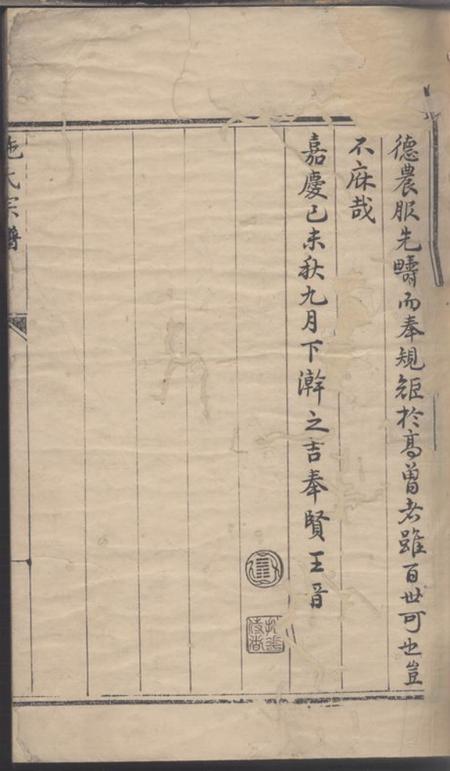 德農服先疇而奉規矩於高曾者雖百世可也豈
不庥哉
嘉慶己未秋九月下澣之吉奉賢王晉
施氏宗譜